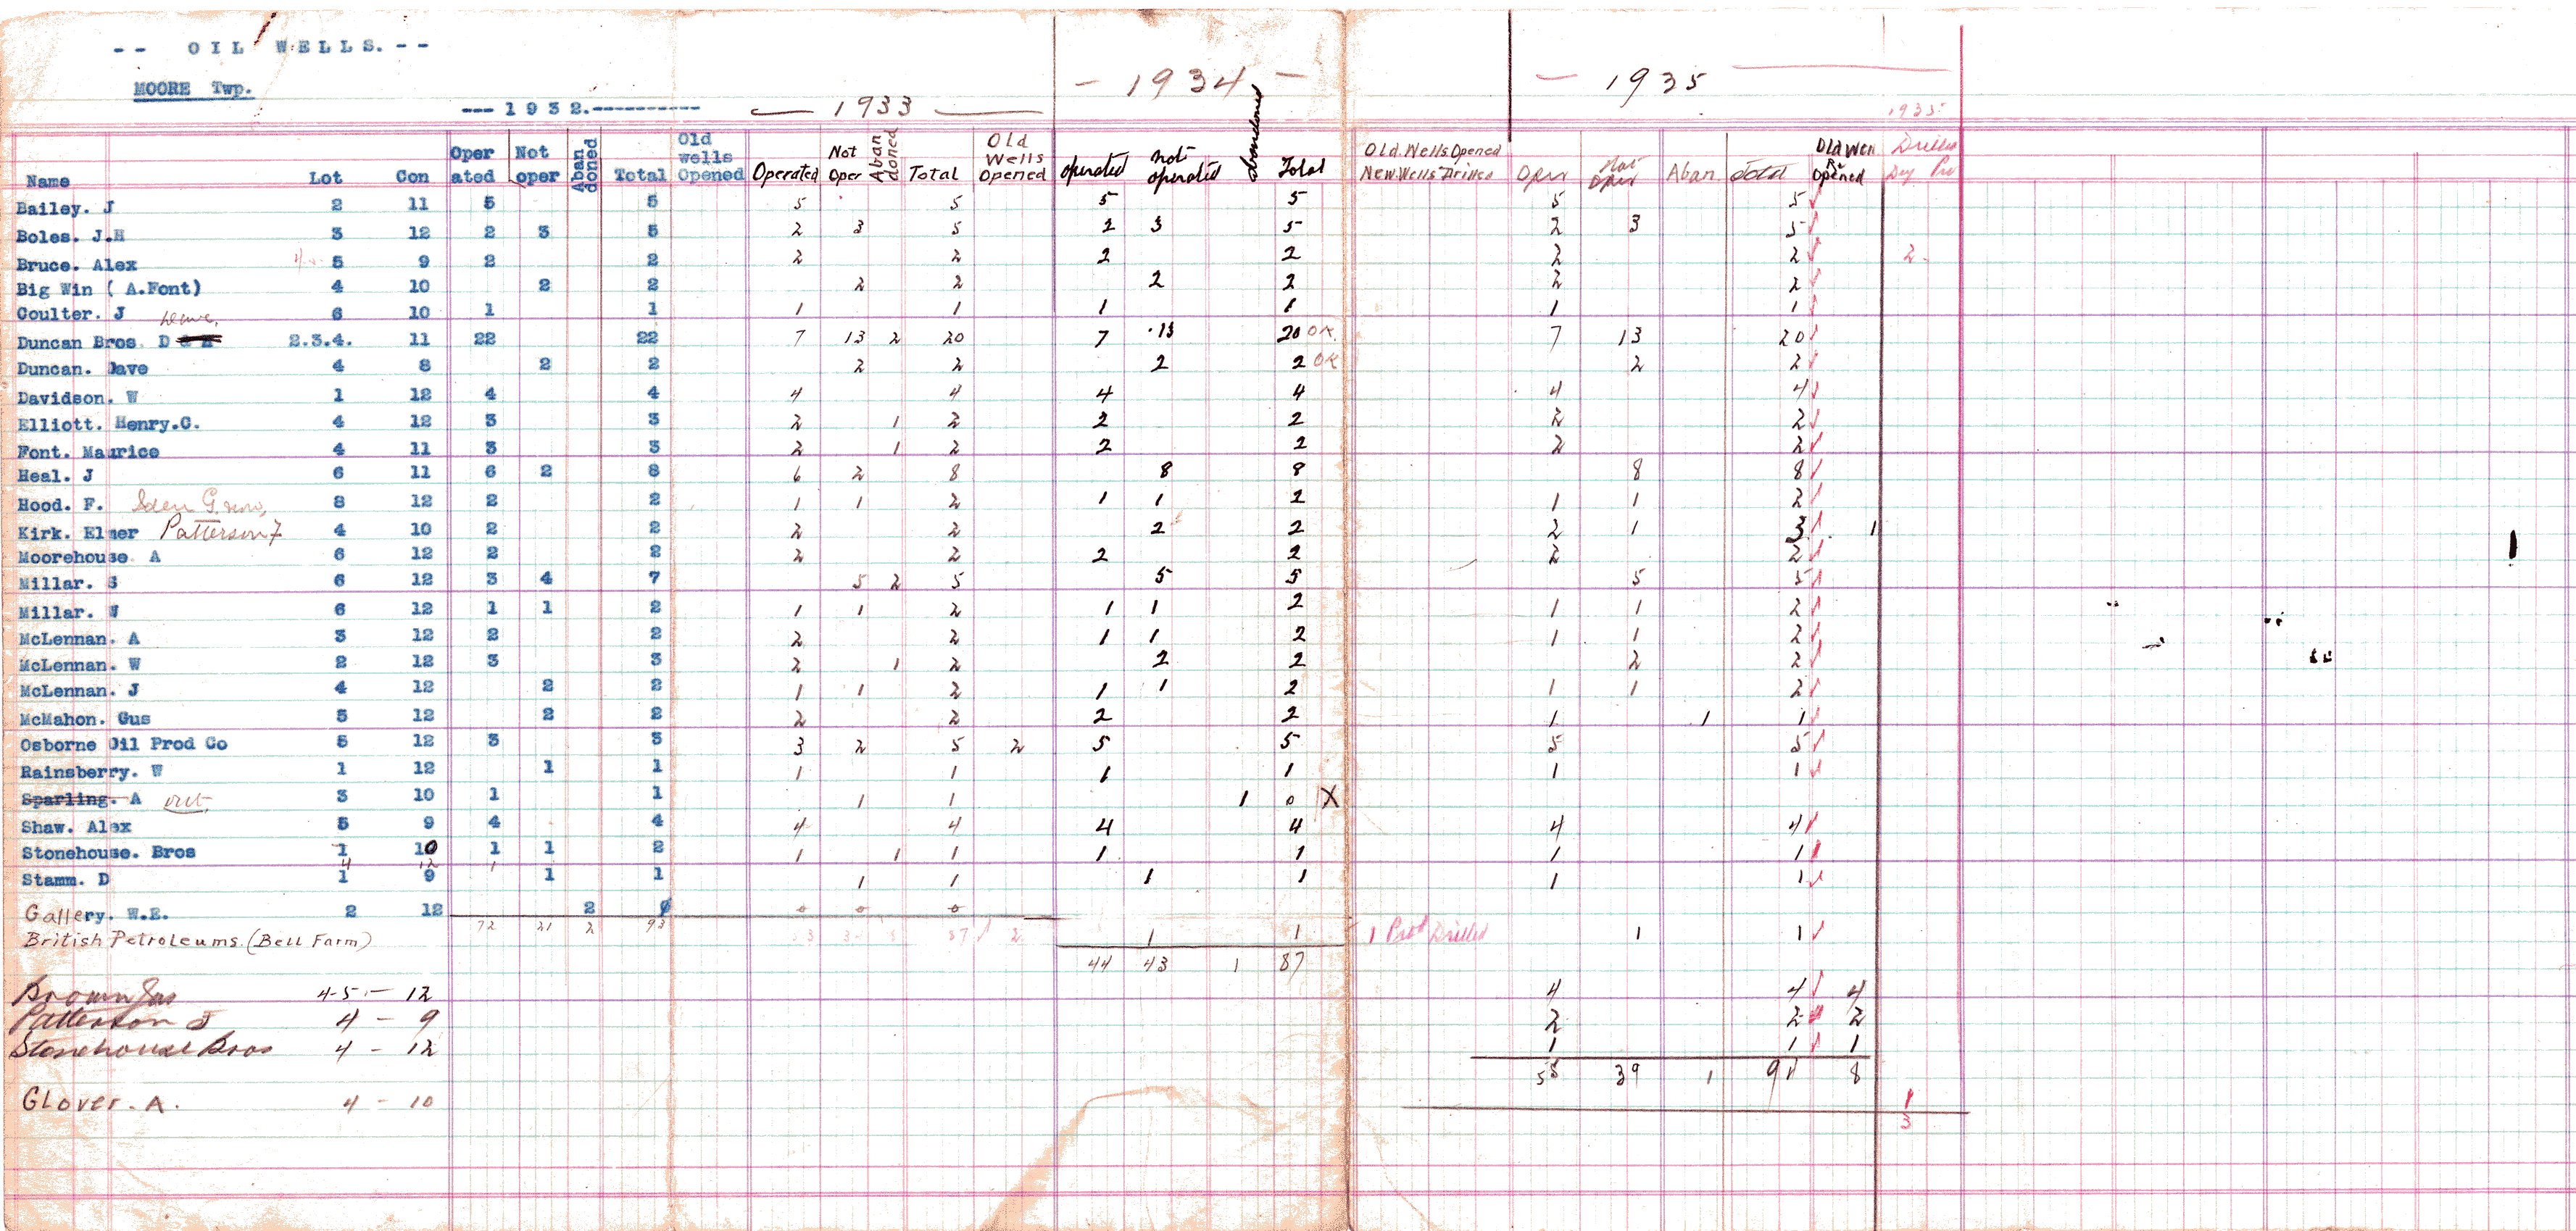 -- OIL WELLS. --
MOORE Twp.
--- 1932.---------- — 1933 — — 1934 — — 1935 —
1935
Name Lot Con Oper ated Not oper Aban doned Total Old wells Opened Operated Not Oper Aban doned Total Old Wells Opened Operated not operated Abandoned Total Old Wells Opened New Wells Drilled Oper Not Oper Aban Total Old Well Re Opened Drilled Dry Pro
Bailey. J 2 11 5 5 5 5 5 5 5 5 ✓
Boles. J.H 3 12 2 3 5 2 3 5 2 3 5 2 3 5 ✓
Bruce. Alex 5 9 2 2 2 2 2 2 2 2 ✓ 2.
Big Win ( A.Font) 4 10 2 2 2 2 2 2 2 2 ✓
Coulter. J 6 10 1 1 1 1 1 1 1 1 ✓
Duncan Bros. D 2.3.4. 11 22 22 7 13 2 20 7 13 20 OK 7 13 20 ✓
Duncan. Dave 4 8 2 2 2 2 2 2 OK 2 2 ✓
Davidson. W 1 12 4 4 4 4 4 4 4 4 ✓
Elliott. Henry.C. 4 12 3 3 2 1 2 2 2 2 2 ✓
Font. Maurice 4 11 3 3 2 1 2 2 2 2 2 ✓
Heal. J 6 11 6 2 8 6 2 8 8 8 8 8 ✓
Hood. F. 8 12 2 2 1 1 2 1 1 2 1 1 2 ✓
Kirk. Elmer Patterson F 4 10 2 2 2 2 2 2 2 1 3 ✓ 1
Moorehouse. A 6 12 2 2 2 2 2 2 2 2 ✓
Millar. S 6 12 3 4 7 5 2 5 5 5 5 5 ✓
Millar. W 6 12 1 1 2 1 1 2 1 1 2 1 1 2 ✓
McLennan. A 3 12 2 2 2 2 1 1 2 1 1 2 ✓
McLennan. W 2 12 3 3 2 1 2 2 2 2 2 ✓
McLennan. J 4 12 2 2 1 1 2 1 1 2 1 1 2 ✓
McMahon. Gus 5 12 2 2 2 2 2 2 1 1 1 ✓
Osborne Oil Prod Co 5 12 3 3 3 2 5 2 5 5 5 5 ✓
Rainsberry. W 1 12 1 1 1 1 1 1 1 1 ✓
Sparling. A out 3 10 1 1 1 1 1 0 X
Shaw. Alex 5 9 4 4 4 4 4 4 4 4 ✓
Stonehouse. Bros 1 10 1 1 2 1 1 1 1 1 1 1 ✓
4 12 1
Stamm. D 1 9 1 1 1 1 1 1 1 1 ✓
Gallery. W.E. 2 12 2 0 0 0 0
72 21 2 93 87 2
British Petroleums. (Bell Farm) 1 1 1 Prod Drilled 1 1 ✓
44 43 1 87
Brown Jas 4-5 - 12 4 4 ✓ 4
Patterson J 4 - 9 2 2 ✓ 2
Stonehouse Bros 4 - 12 1 1 ✓ 1
55 39 1 94 8
Glover. A. 4 - 10 1
3